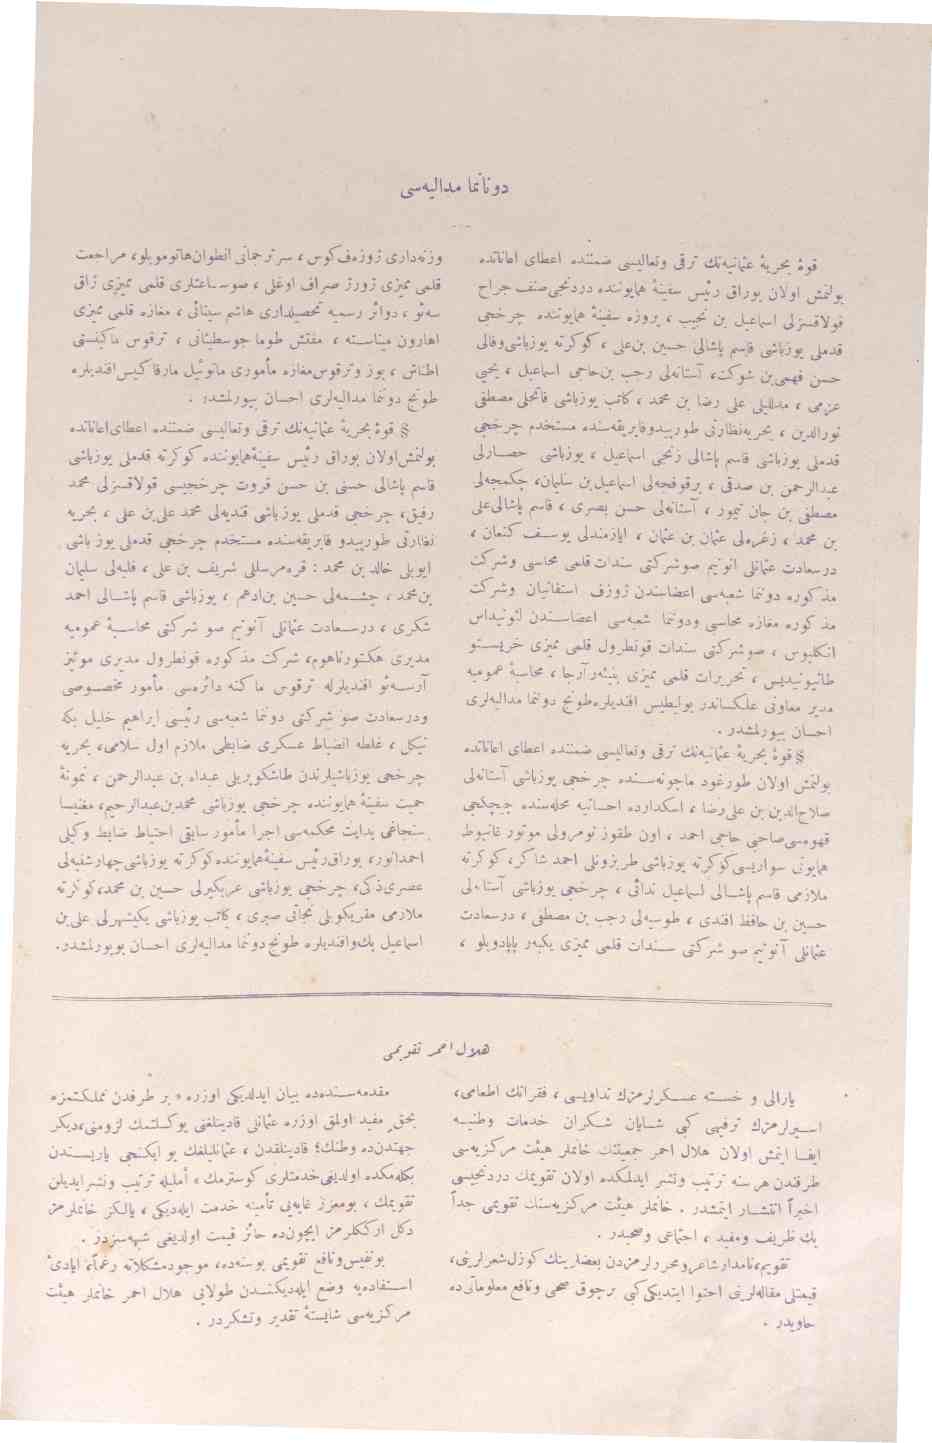 دونانما مدالیه‌سی
قوهٔ بحریهٔ عثمانیه‌نك ترقی وتعالیسی ضمننده اعطای اعاناتده
بولنمش اولان بوراق رئیس سفینهٔ همایوننده دردنجی صنف جراح
قولاقسزلی اسماعیل بن نجیب ، پروزه سفینهٔ همایوننده چرخجی
قدملی یوزباشی قاسم پاشالی حسین بن علی ، كوكرته یوزباشی وفالی
حسن فهمی بن شوكت، آستانه‌لی رجب بن حاجی اسماعیل ، یحیی
عزمی ، مدللیلی علی رضا بن محمد ، كاتب یوزباشی فاتحلی مصطفی
نورالدین ، بحریه نظارتی طورپیدو فابریقه‌سنده مستخدم چرخجی
قدملی یوزباشی قاسم پاشالی زنجی اسماعیل ، یوزباشی حصارلی
عبدالرحمن بن صدقی ، برقوقجه‌لی اسماعیل بن سلیمان، چكمجه‌لی
مصطفی بن جان تیمور ، آستانه‌لی حسن بصری ، قاسم پاشالی علی
بن محمد ، زغره‌لی عثمان بن عثمان ، ایازمندلی یوسف كنعان ،
درسعادت عثمانلی انونیم صو شركتی سندات قلمی محاسبی وشركت
مذكوره دوننما شعبه‌سی اعضاسندن ژوزف استفانیان وشركت
مذكوره مغازه محاسبی ودوننما شعبه‌سی اعضاسندن لئونیداس
انكلیوس ، صو شركتی سندات قونطرول قلمی ممیزی خریستو
طانیونیدیس ، تحریرات قلمی ممیزی آرجا ، محاسبهٔ عمومیه
مدیر معاونی علكساندر پولیطیس افندیلره طونج دوننما مدالیه‌لری
احسان بیورلمشدر .
§ قوهٔ بحریهٔ عثمانیه‌نك ترقی وتعالیسی ضمننده اعطای اعاناتده
بولنمش اولان طورغود ماچونه‌سنده چرخجی یوزباشی آستانه‌لی
صلاح‌الدین بن علی رضا ، اسكدارده احسانیه محله‌سنده چیچكجی
قهوه‌سی صاحبی حاجی احمد ، اون طقوز نومرولی موتور غانبوط
همایونی سواریسی كوكرته یوزباشی طربزونلی احمد شاكر، كوكرته
ملازمی قاسم پاشالی اسماعیل ندائی ، چرخجی یوزباشی آستانه‌لی
حسین بن حافظ افندی ، طوسیه‌لی رجب بن مصطفی ، درسعادت
عثمانلی آنونیم صو شركتی سندات قلمی ممیزی یكبه‌ر پاپادوپلو ،
وزنه‌داری ژوزه‌ف كوس ، سرترجمانی انطوان هاتوموپلو، مراجعت
قلمی ممیزی ژورژ صراف اوغلی ، صو ساعتلری قلمی ممیزی ژاق
سه‌ئو ، دوائر رسمیه تحصیلداری هاشم سینائی ، مغازه قلمی ممیزی
اهارون میناسته ، مفتش طوما جوسطینیانی ، ترقوس ماكینستی
اطناش ، بوز وترقوس مغازه مأموری مانوئیل مارفاكیس افندیلره
طونج دوننما مدالیه‌لری احسان بیورلمشدر .
§ قوهٔ بحریهٔ عثمانیه‌نك ترقی وتعالیسی ضمننده اعطای اعاناتده
بولنمش اولان بوراق رئیس سفینهٔ همایوننده كوكرته قدملی یوزباشی
قاسم پاشالی حسنی بن حسن قروت چرخجیسی قولاقسزلی محمد
رفیق، چرخجی قدملی یوزباشی قندیه‌لی محمد علی بن علی ، بحریه
نظارتی طورپیدو فابریقه‌سنده مستخدم چرخجی قدملی یوزباشی
ایوبلی خالد بن محمد : قره‌مرسللی شریف بن علی ، فلبه‌لی سلیمان
بن محمد ، چشمه‌لی حسین بن ادهم ، یوزباشی قاسم پاشالی احمد
شكری ، درسعادت عثمانلی آنونیم صو شركتی محاسبهٔ عمومیه
مدیری هكتورناهوم، شركت مذكوره قونطرول مدیری موئیز
آرسه‌ئو افندیلرله ترقوس ماكنه دائره‌سی مأمور مخصوصی
ودرسعادت صو شركتی دوننما شعبه‌سی رئیسی ابراهیم خلیل بكه
نیكل ، غلطه انضباط عسكری ضابطی ملازم اول سلامی، بحریه
چرخجی یوزباشیلرندن طاشكوپریلی عبداء بن عبدالرحمن ، نمونهٔ
حمیت سفینهٔ همایوننده چرخجی یوزباشی محمد بن عبدالرحیم، مغنیسا
سنجاغی بدایت محكمه‌سی اجرا مأمور سابقی احتیاط ضابط وكیلی
احمد انور، بوراق رئیس سفینهٔ همایوننده كوكرته یوزباشی چهارشنبه‌لی
عصری ذكی، چرخجی یوزباشی عربكیرلی حسین بن محمد، كوكرته
ملازمی مقریكویلی نجاتی صبری ، كاتب یوزباشی یكیشهرلی علی بن
اسماعیل بك وافندیلره طونج دوننما مدالیه‌لری احسان بویورلمشدر.
هلال احمر تقویمی
یارالی و خسته عسكرلرمزك تداویسی ، فقرانك اطعامی،
اسیرلرمزك ترفیهی كبی شایان شكران خدمات وطنیه
ایفا ایتمش اولان هلال احمر جمعیتنك خانملر هیئت مركزیه‌سی
طرفندن هر سنه ترتیب ونشر ایدلمكده اولان تقویمك دردنجیسی
اخیراً انتشار ایتمشدر . خانملر هیئت مركزیه‌سنك تقویمی جداً
پك ظریف ومفید ، اجتماعی وصحیدر .
تقویم، نامدار شاعر ومحررلرمزدن بعضلرینك كوزل شعرلرینی،
قیمتلی مقاله‌لرینی احتوا ایتدیكی كبی برچوق صحی ونافع معلوماتی ده
حاویدر .
مقدمه‌سنده‌ده بیان ایدلدیكی اوزره « بر طرفدن مملكتمزه
بحق مفید اولمق اوزره عثمانلی قادینلغنی یوكسلتمك لزومنی، دیكر
جهتدن ده وطنك؛ قادینلقدن ، عثمانلیلغك بو ایكنجی یاریسندن
بكله‌مكده اولدیغی خدمتلری كوسترمك » أملیله ترتیب ونشر ایدیلن
تقویمك ، بو معزز غایه‌یی تأمینه خدمت ایله‌دیكی ، یالكز خانملرمز
دكل ارككلرمز ایچون ده حائز قیمت اولدیغی شبهه‌سزدر .
بو نفیس ونافع تقویمی بو سنه‌ده، موجود مشكلاته رغماً، ایادیٔ
استفاده‌یه وضع ایله‌دیكندن طولایی هلال احمر خانملر هیئت
مركزیه‌سی شایستهٔ تقدیر وتشكردر .